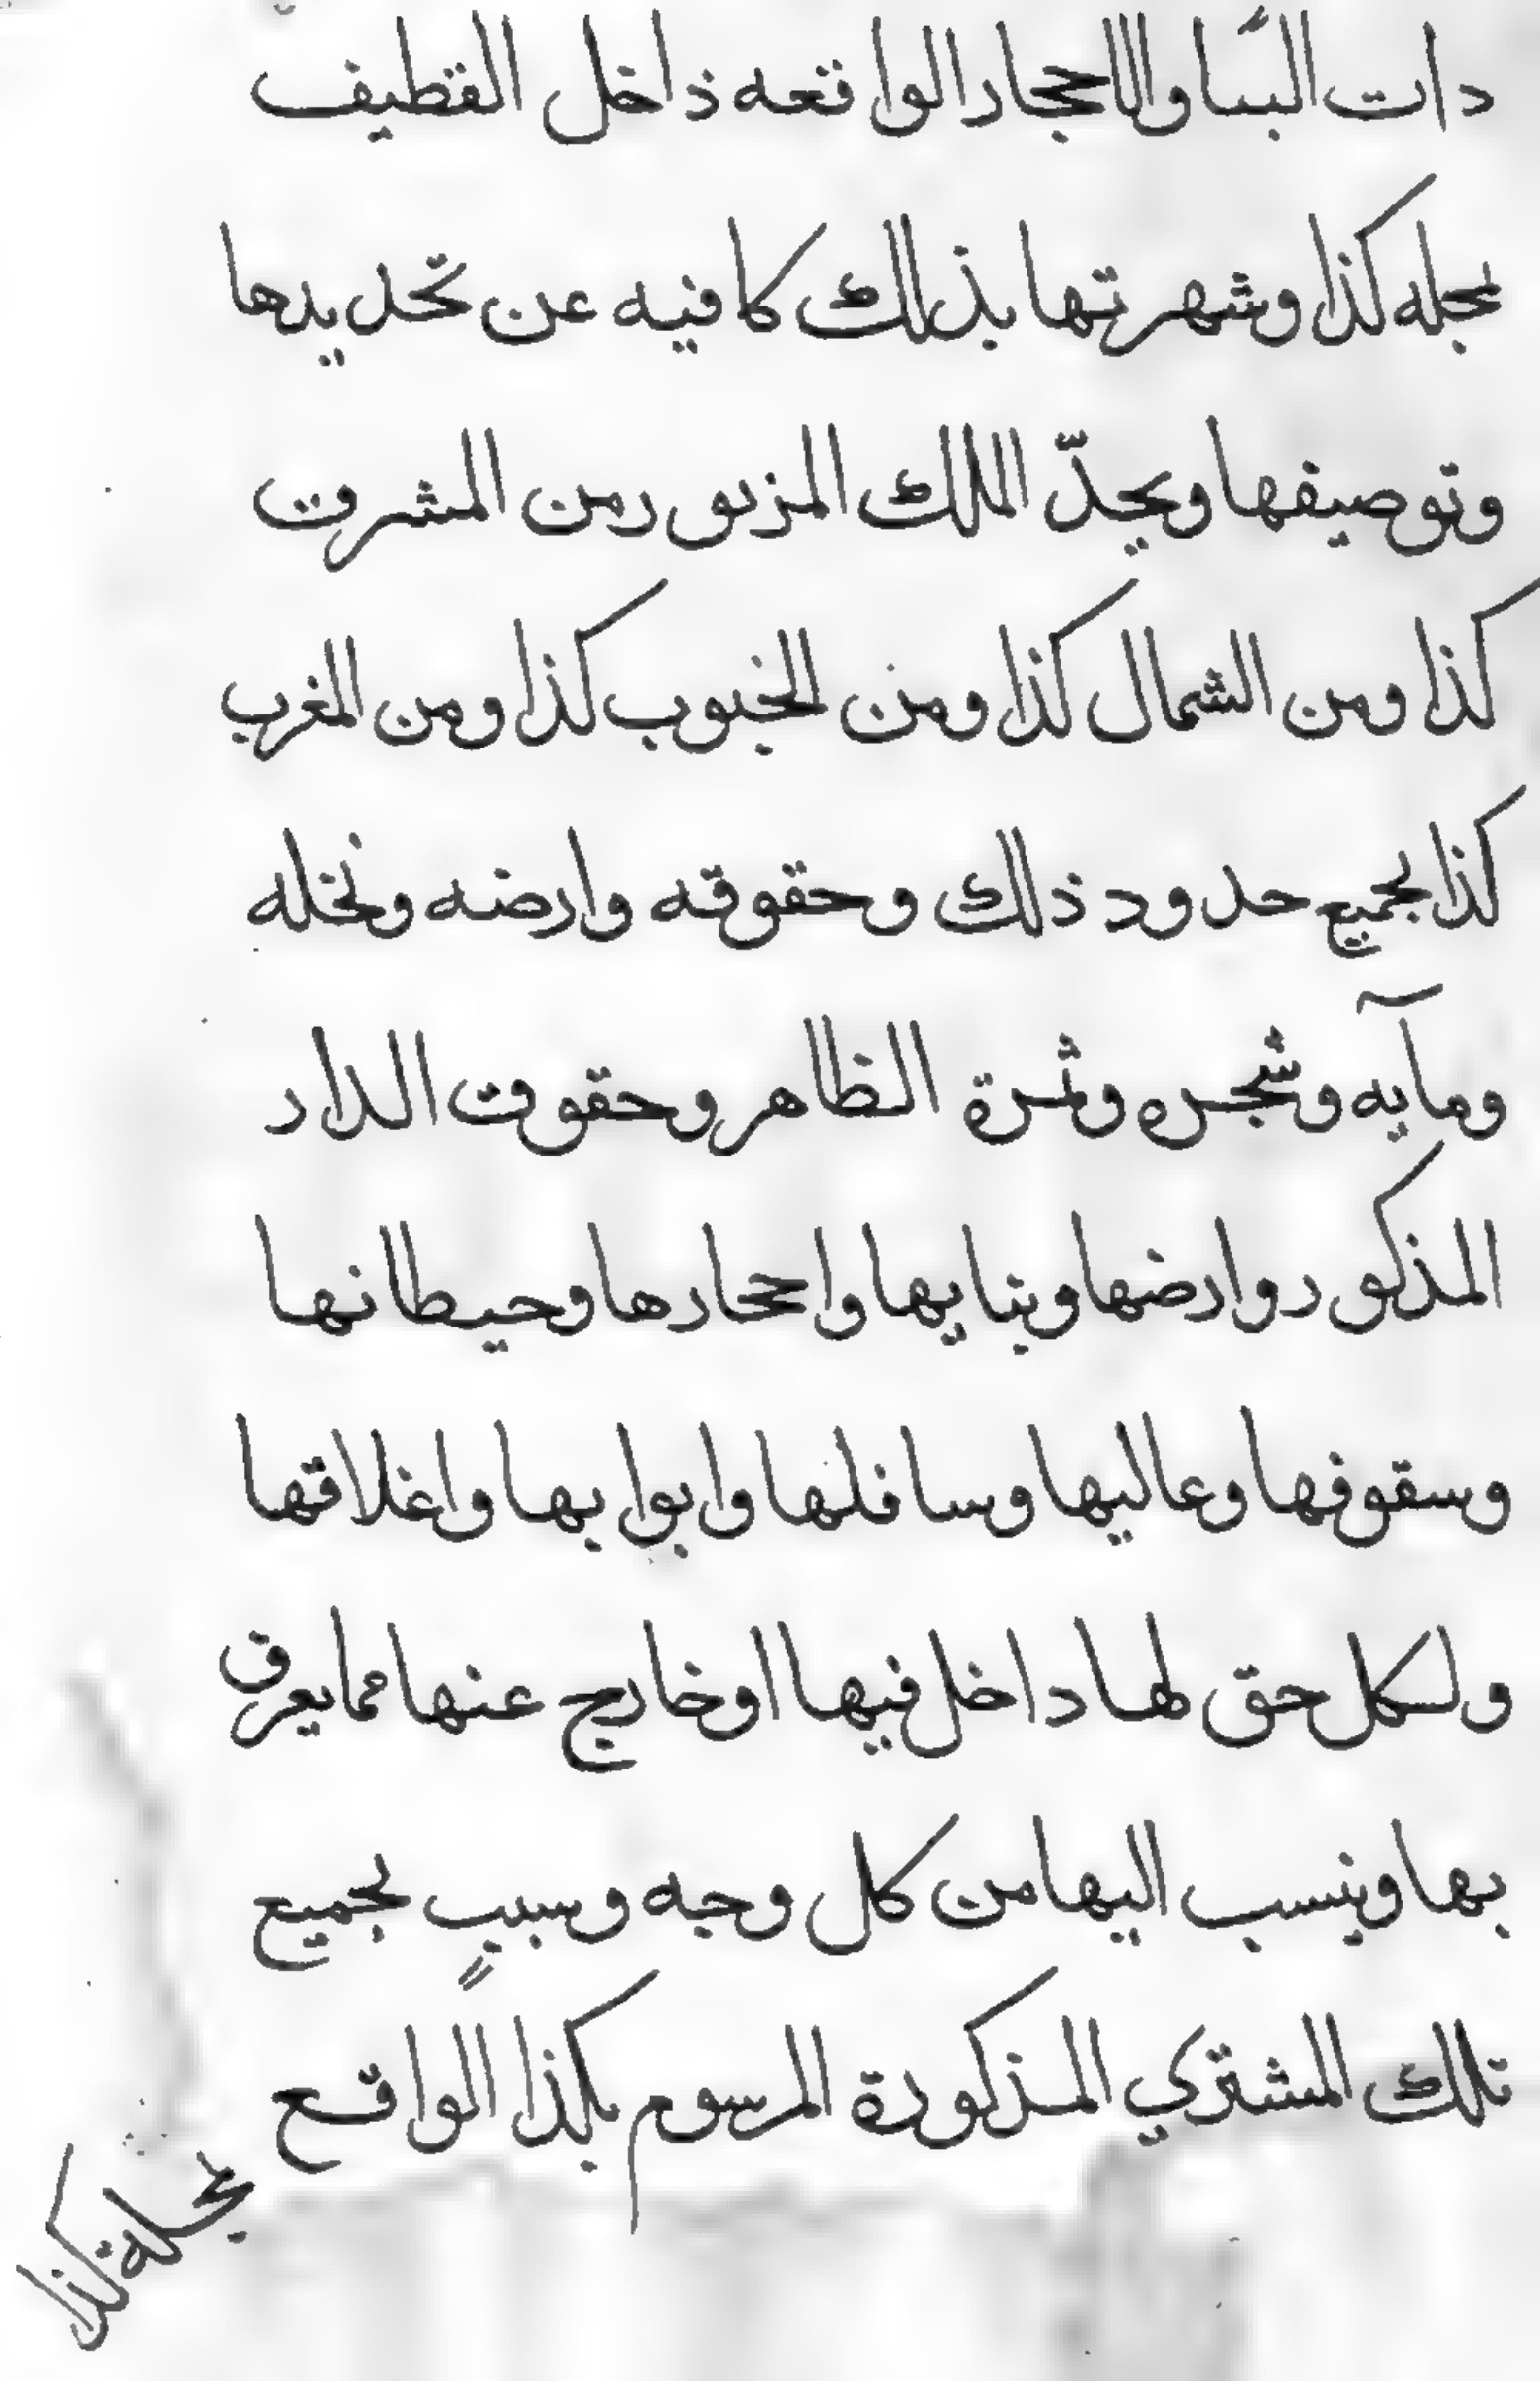 دات البنا والاحجار الواقعه ذاخل القطيف
بمحله كذا وشهرتها بذلك كافيه عن تحديدها
وتوصيفها ويحدّ الملك المزبور من المشرق
كذا ومن الشمال كذا ومن الجنوب كذا ومن المغرب
كذا بجميع حدود ذلك وحقوقه وارضه ونخله
ومآيه وشجره وثمرة الظاهر وحقوق الدار
المذكور وارضها وبنايها واحجارها وحيطانها
وسقوفها وعاليها وسافلها وابوابها واغلاقها
ولكل حق لها داخل فيها او خارج عنها مما يعرف
بها وينسب اليها من كل وجه وسببٍ بجميع
تلك المشتري المذكورة المرسوم بكذا الواقع
بمحلة كذا